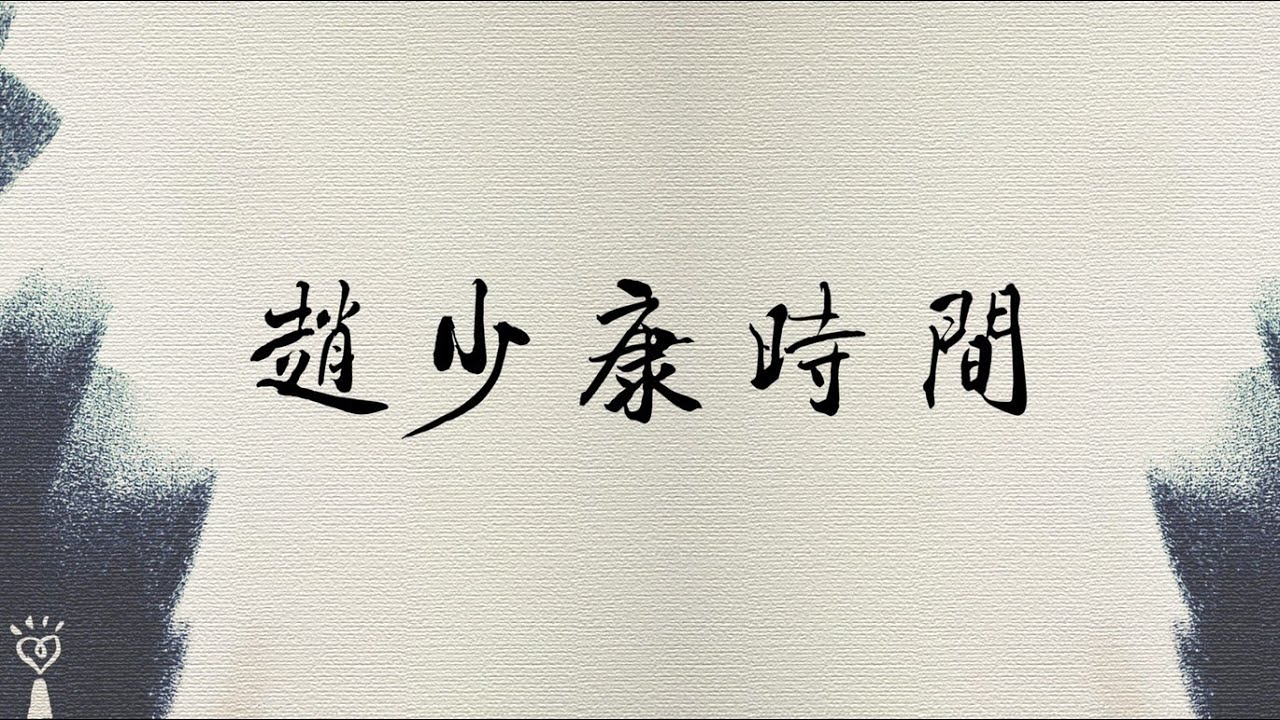 趙少康時間